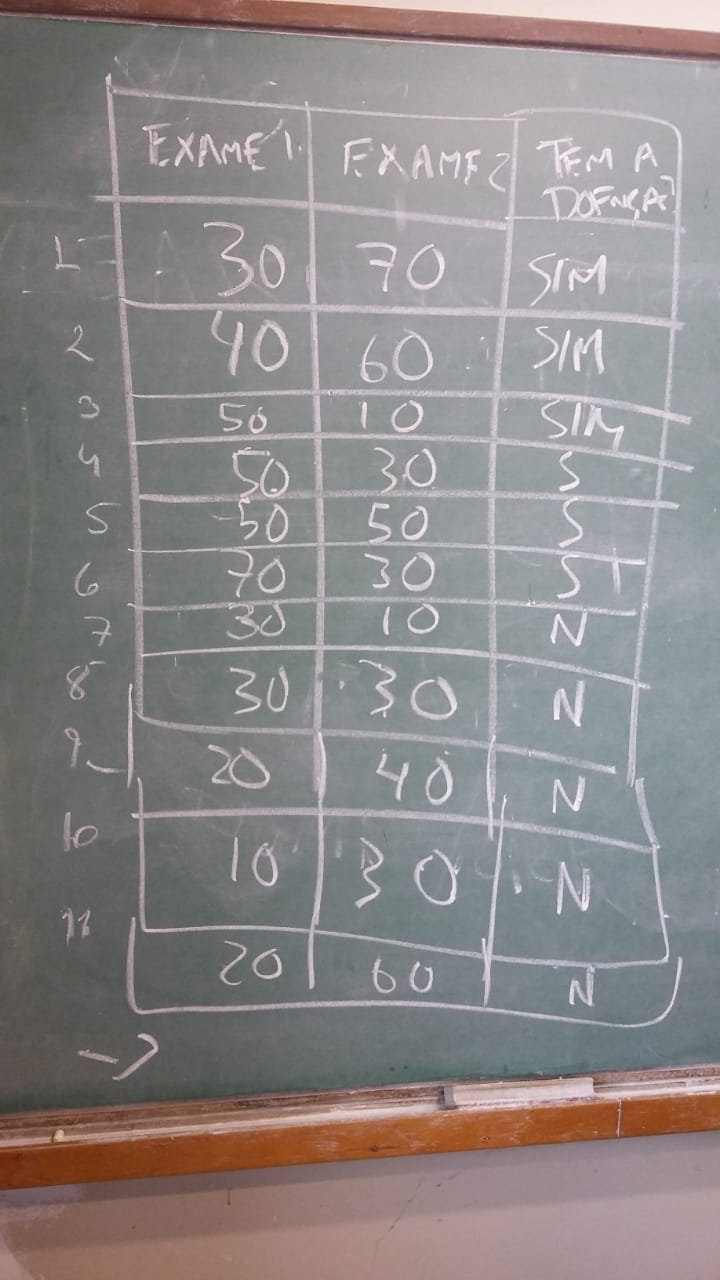 EXAME 1. EXAME 2 TEM A
DOENÇA?
1 30 70 SIM
2 40 60 SIM
3 50 10 SIM
4 50 30 S
5 50 50 S
6 70 30 S
7 30 10 N
8 30 30 N
9 20 40 N
10 10 30 N
11 20 60 N
→